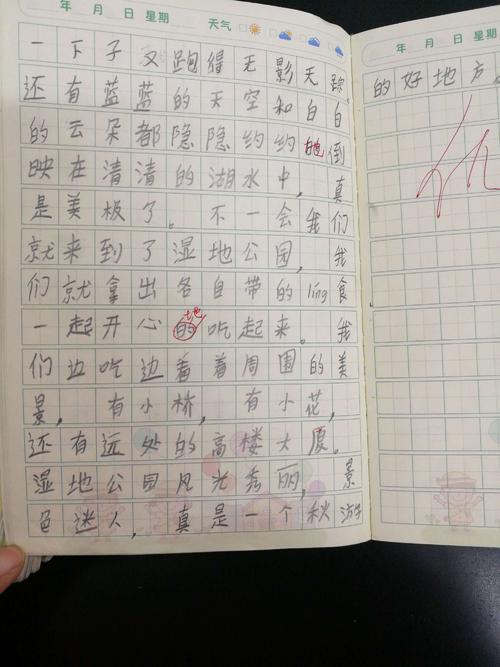 年 月 日 星期 天气
一下子又跑得无影无踪
还有蓝蓝的天空和白白
的云朵都隐隐约约地倒
映在清清的湖水中，真
是美极了。不一会我们
就来到了湿地公园，我
们就拿出各自带的líng食
一起开心的地吃起来。我
们边吃边看着周围的美
景，有小桥，有小花，
还有远处的高楼大厦。
湿地公园风光秀丽，景
色迷人，真是一个秋游
年 月 日 星期
的好地方
优